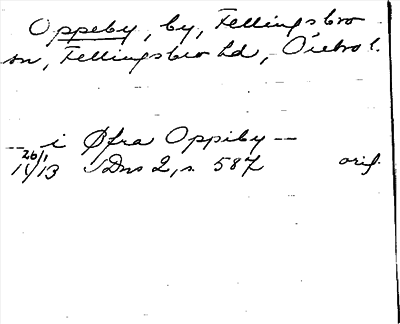 Oppeby, by, Fellingsbro
sn, Fellingsbro hd, Örebro l.
-- i Øfra Oppiby --
26/1
1413 SDns 2, s. 587 orig.